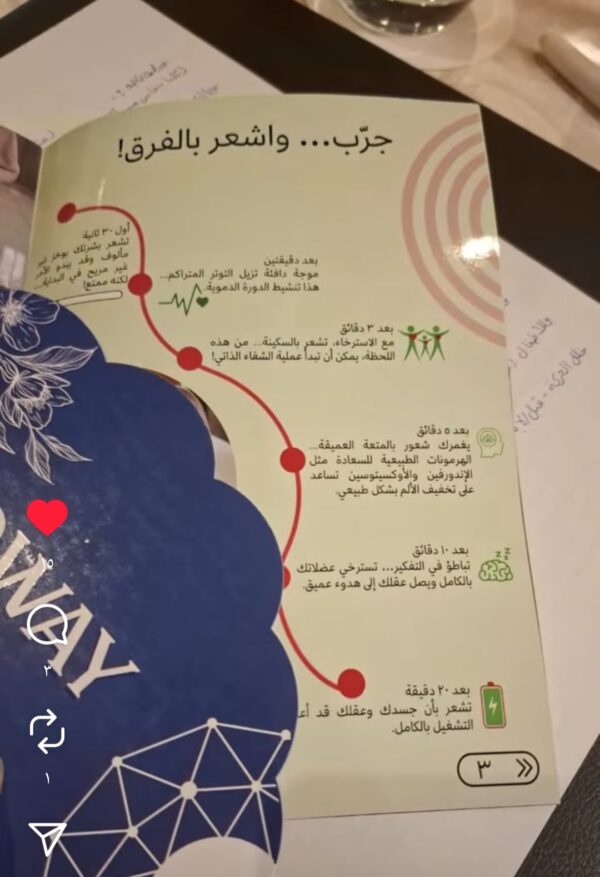 جرّب... واشعر بالفرق!
أول ٣٠ ثانية
تشعر بشرتك بوخز غير
مألوف وقد يبدو الأمر
غير مريح في البداية...
لكنه ممتع!
بعد دقيقتين
موجة دافئة تزيل التوتر المتراكم...
هذا تنشيط الدورة الدموية.
بعد ٣ دقائق
مع الاسترخاء، تشعر بالسكينة... من هذه
اللحظة، يمكن أن تبدأ عملية الشفاء الذاتي!
بعد ٥ دقائق
يغمرك شعور بالمتعة العميقة...
الهرمونات الطبيعية للسعادة مثل
الإندورفين والأوكسيتوسين تساعد
على تخفيف الألم بشكل طبيعي.
بعد ١٠ دقائق
تباطؤ في التفكير... تسترخي عضلاتك
بالكامل ويصل عقلك إلى هدوء عميق.
بعد ٢٠ دقيقة
تشعر بأن جسدك وعقلك قد
التشغيل بالكامل.
٣
WAY
١٥
٣
١